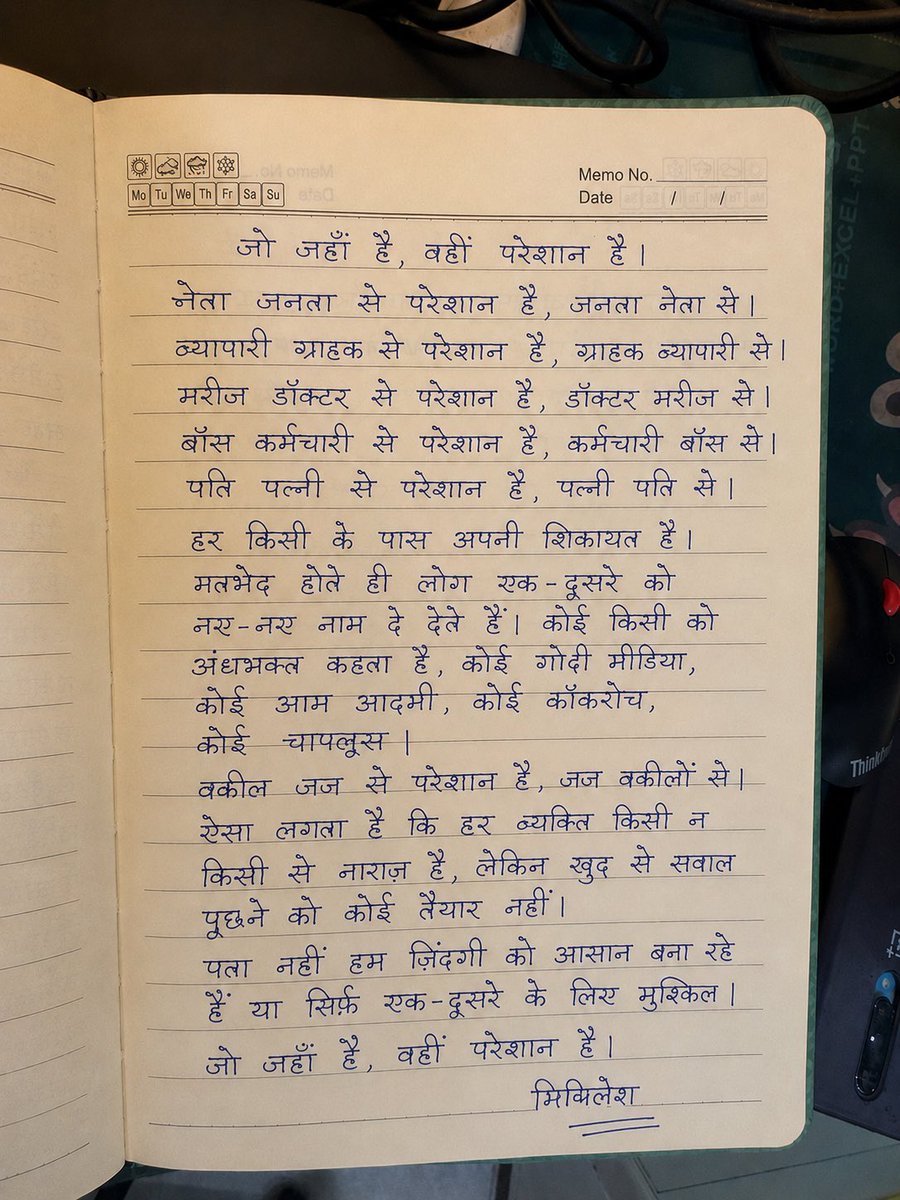 Memo No.
Mo Tu We Th Fr Sa Su
Date / /
जो जहाँ है, वहीं परेशान है।
नेता जनता से परेशान है, जनता नेता से।
व्यापारी ग्राहक से परेशान है, ग्राहक व्यापारी से।
मरीज डॉक्टर से परेशान है, डॉक्टर मरीज से।
बॉस कर्मचारी से परेशान है, कर्मचारी बॉस से।
पति पत्नी से परेशान है, पत्नी पति से।
हर किसी के पास अपनी शिकायत है।
मतभेद होते ही लोग एक-दूसरे को
नए-नए नाम दे देते हैं। कोई किसी को
अंधभक्त कहता है, कोई गोदी मीडिया,
कोई आम आदमी, कोई कॉकरोच,
कोई चापलूस।
वकील जज से परेशान है, जज वकीलों से।
ऐसा लगता है कि हर व्यक्ति किसी न
किसी से नाराज़ है, लेकिन खुद से सवाल
पूछने को कोई तैयार नहीं।
पता नहीं हम ज़िंदगी को आसान बना रहे
हैं या सिर्फ़ एक-दूसरे के लिए मुश्किल।
जो जहाँ है, वहीं परेशान है।
मिथिलेश
WORD+EXCEL+PPT